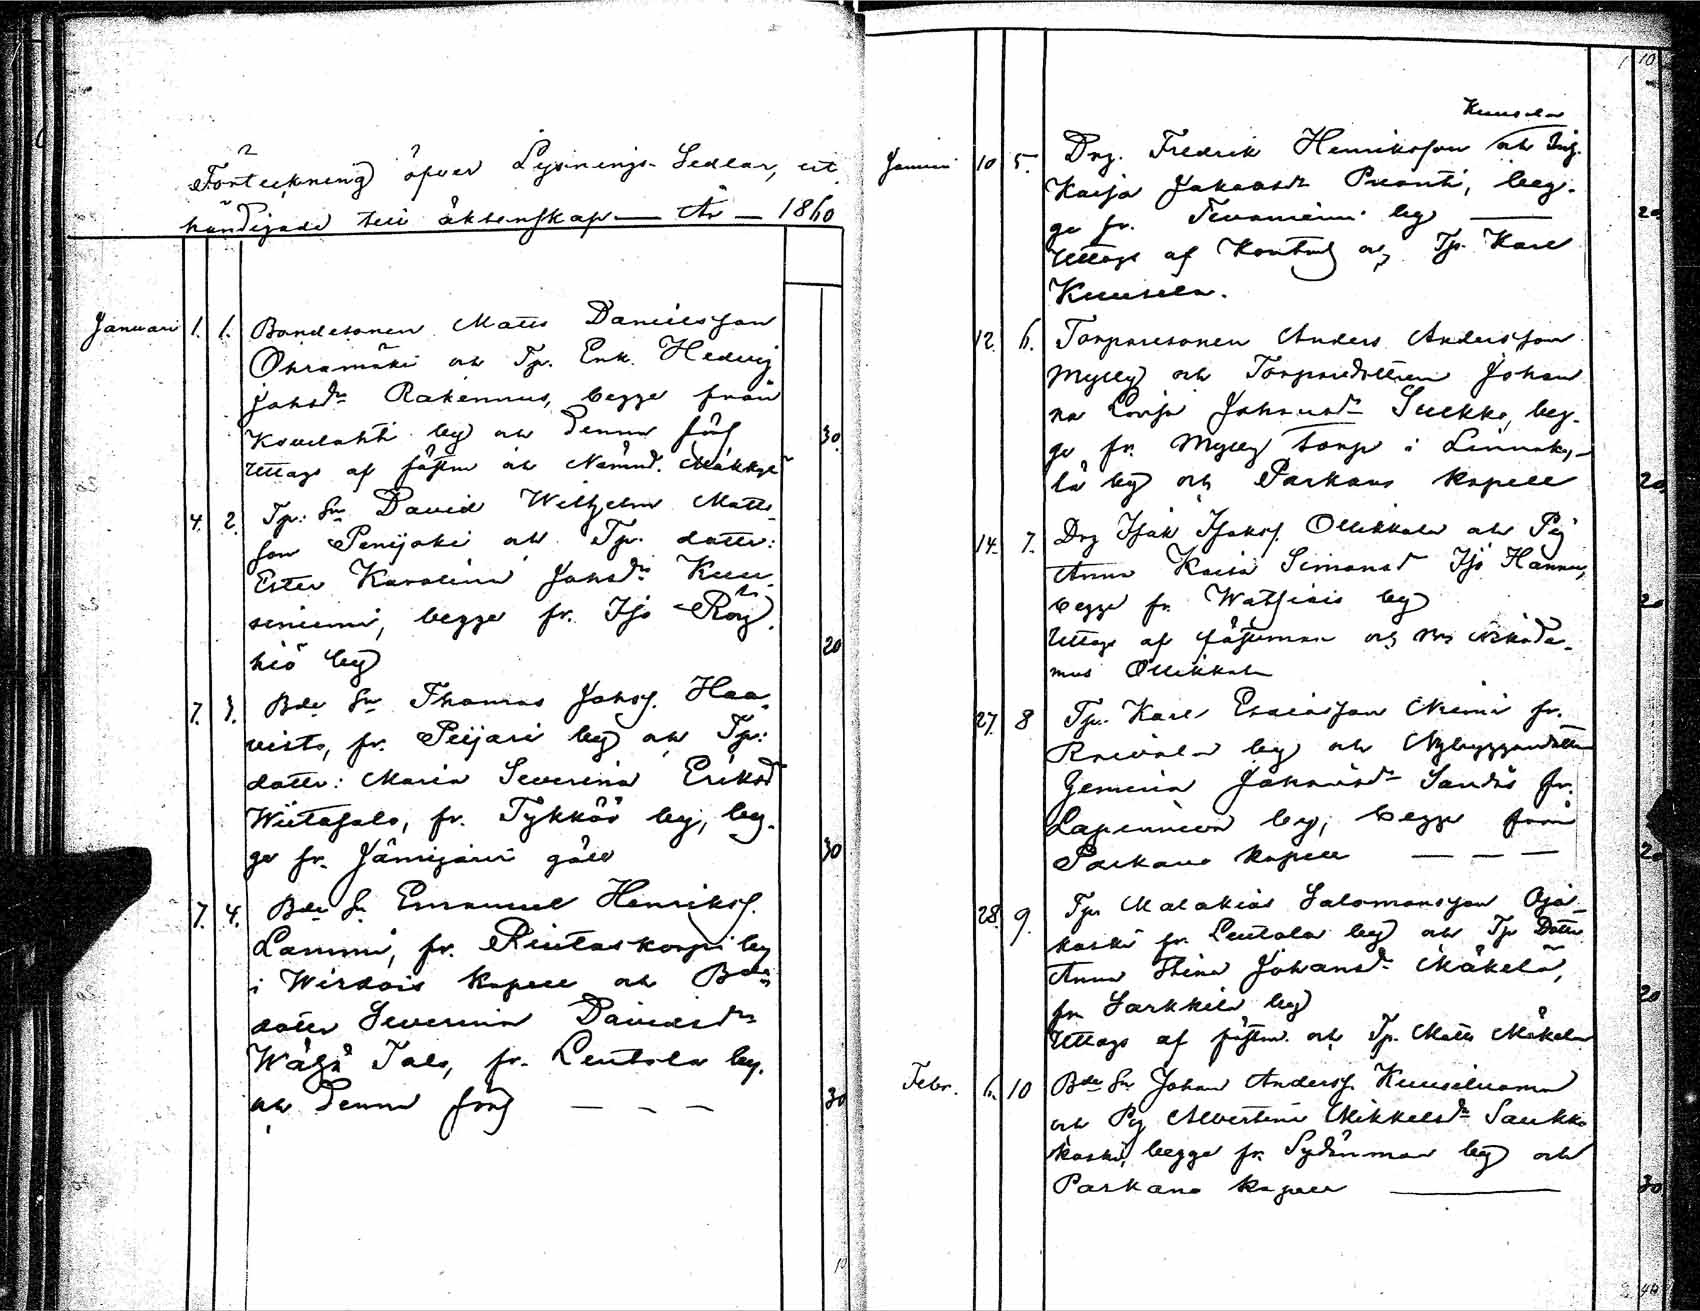 Förteckning öfver Lysnings-Sedlar, ut
händigade till äktenskap — År — 1860
Januari 1. 1. Bondesonen Matts Danielsson
Ohramäki och Tp. Enk. Hedvig
Johsdr Rakennus, begge från
Kovelahti by och denna förs
Uttags af fästm och Nämnd.
30
4. 2. Tp: Sn David Wilhelm Matts
son Penijoki och Tp. dotter:
Ester Karolina Johsdr Kuu
seniemi, begge fr. Iso Röy
hiö by
20
7. 3. Bde Sn Thomas Johss. Haa
visto, fr. Peijari by och Tp:
dotter: Maria Severina Eriksd
Wiitasalo, fr. Tykköö by, beg-
ge fr. Jämijärvi gäll
30
7. 4. Bde Sn Emanuel Henrikss.
Lammi, fr. Riutaskorpi by
i Wirdois kapell och Bde
dotter Severina Davidsdr
Wäljä Talo, fr. Lentola by.
och denna förs — — —
30
Kuusela
Januari 10 5. Drg. Fredrik Henriksson och Pig.
Kaisa Jakobsdr Puonti, beg-
ge fr. Tevaniemi by —
20
Uttags af Kontrah och Tp. Karl
Kuusela.
12. 6. Torparesonen Anders Andersson
Mylly och Torparedottren Johan
na Lovisa Johansdr Suckko, beg-
ge fr. Mylly torp i Linnaky-
lä by och Parkano kapell
20
14. 7. Drg Isak Isakss. Ollikkala och Pig
Anna Kaisa Simonsd Iso Hannu,
begge fr. Watsiais by
20
Uttags af fästeman och Nikode-
mus Ollikkala
27. 8 Tp. Karl Esaiasson Niemi fr.
Raivala by och Nybyggardotter
Jemina Johansdr Sandås fr.
Lapinneva by, begge från
Parkano kapell — — —
20
28. 9. Tp. Malakias Salomonsson Oja
koski fr. Lentola by och Tp Dotter
Anna Stina Johansdr Mäkelä,
fr. Sarkkila by
20
Uttags af fästm. och Tp. Matts Mäkelä
Febr. 6. 10 Bde Sn Johan Anderss. Kuuseluoma
och Pig Albertina Mikkelsdr Saukko
koski, begge fr. Sydänmaa by och
Parkano kapell —
30